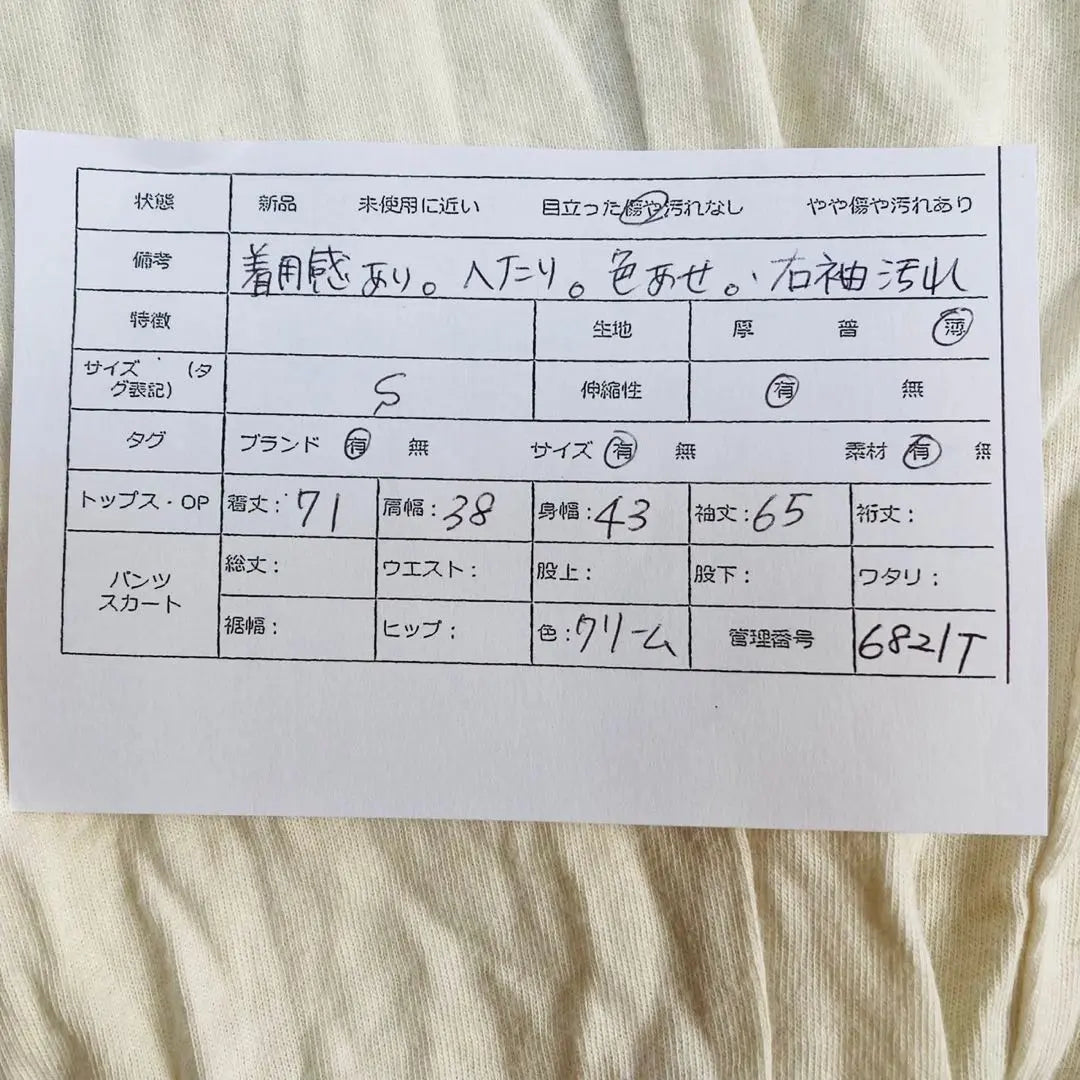 状態 新品 未使用に近い 目立った傷や汚れなし やや傷や汚れあり
備考 着用感あり。へたり。色あせ。右袖汚れ
特徴 生地 厚 普 薄
サイズ (タグ表記) S 伸縮性 有 無
タグ ブランド 有 無 サイズ 有 無 素材 有 無
トップス・OP 着丈:71 肩幅:38 身幅:43 袖丈:65 裄丈:
パンツ スカート 総丈: ウエスト: 股上: 股下: ワタリ:
裾幅: ヒップ: 色:クリーム 管理番号 6821T